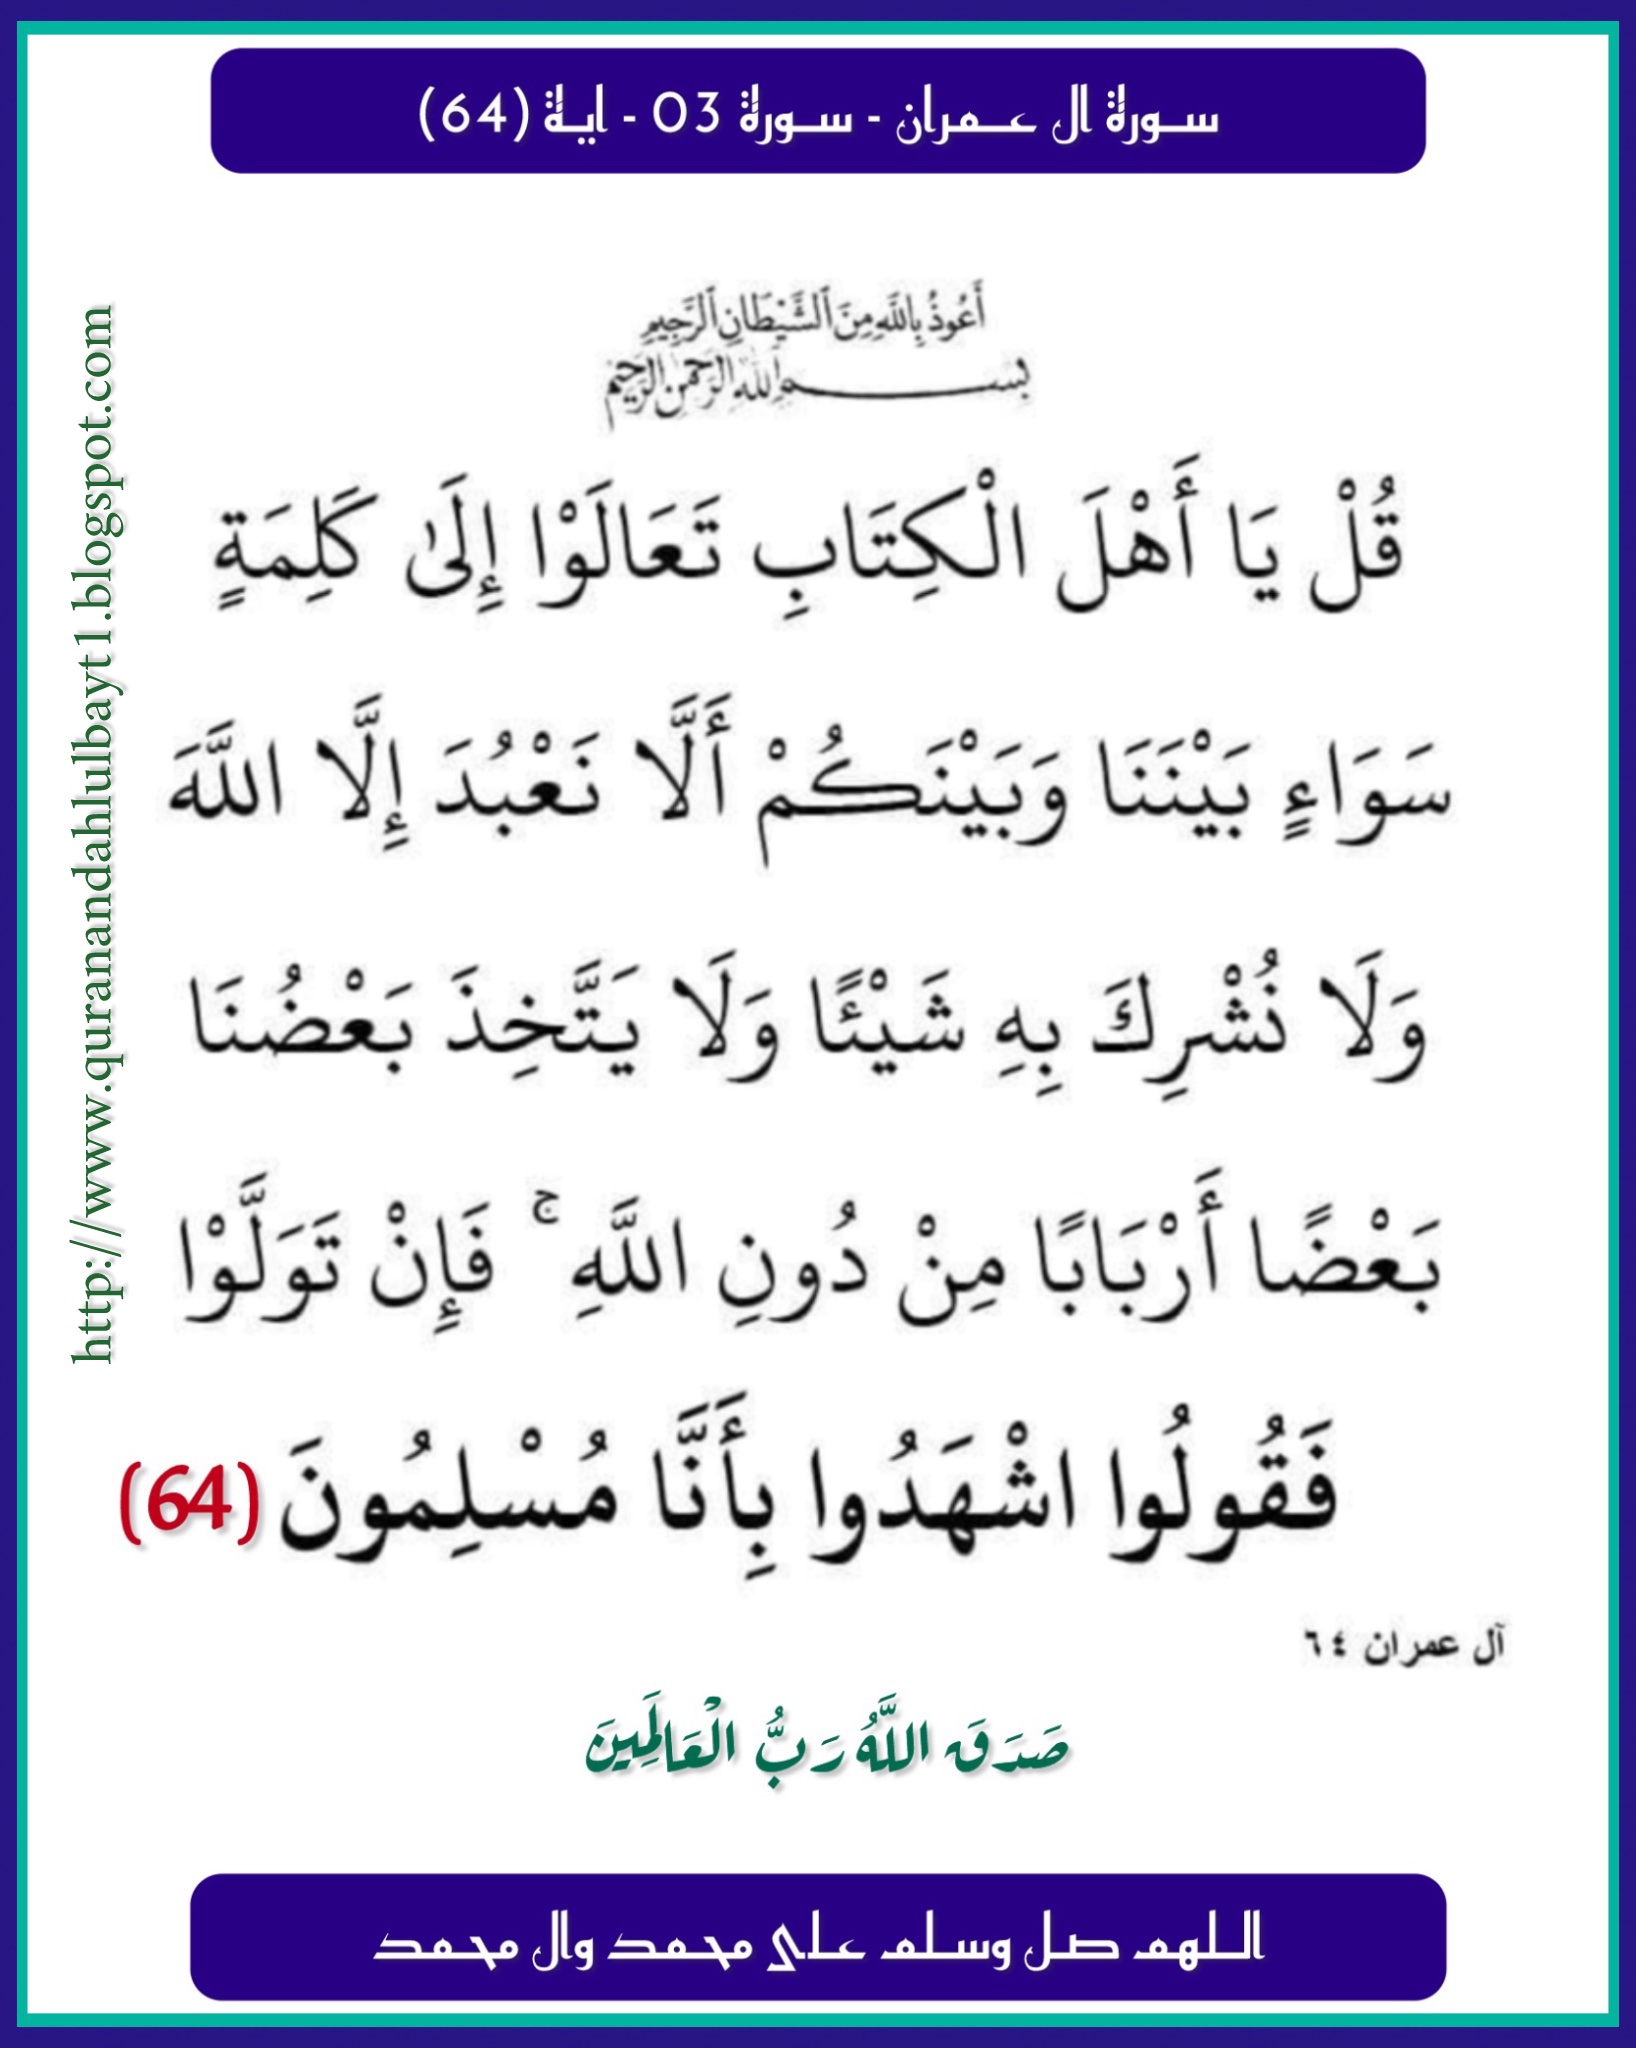 سورة ال عمران - سورة 03 - اية (64)
أَعُوذُ بِاللَّهِ مِنَ ٱلشَّيْطَانِ ٱلرَّجِيمِ
بسم الله الرحمن الرحيم
قُلْ يَا أَهْلَ الْكِتَابِ تَعَالَوْا إِلَىٰ كَلِمَةٍ
سَوَاءٍ بَيْنَنَا وَبَيْنَكُمْ أَلَّا نَعْبُدَ إِلَّا اللَّهَ
وَلَا نُشْرِكَ بِهِ شَيْئًا وَلَا يَتَّخِذَ بَعْضُنَا
بَعْضًا أَرْبَابًا مِنْ دُونِ اللَّهِ ۚ فَإِنْ تَوَلَّوْا
فَقُولُوا اشْهَدُوا بِأَنَّا مُسْلِمُونَ (64)
آل عمران ٦٤
صَدَقَ اللَّهُ رَبُّ الْعَالَمِينَ
اللهم صل وسلم على محمد وال محمد
http://www.quranandahlulbayt1.blogspot.com